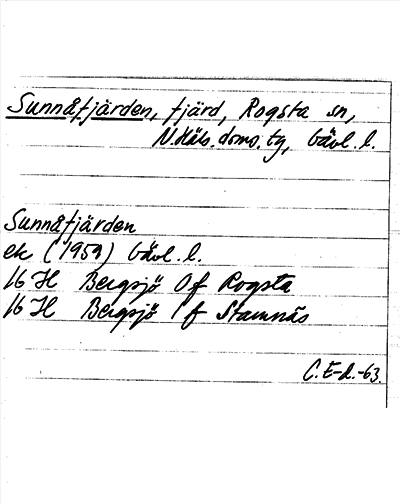 Sunnåfjärden, fjärd, Rogsta sn,
N.Häls. doms. tg, Gävl. l.
Sunnåfjärden
ek (1959) Gävl. l.
16 H Bergsjö 0f Rogsta
16 H Bergsjö 1f Stamnäs
C.E-d.-63.